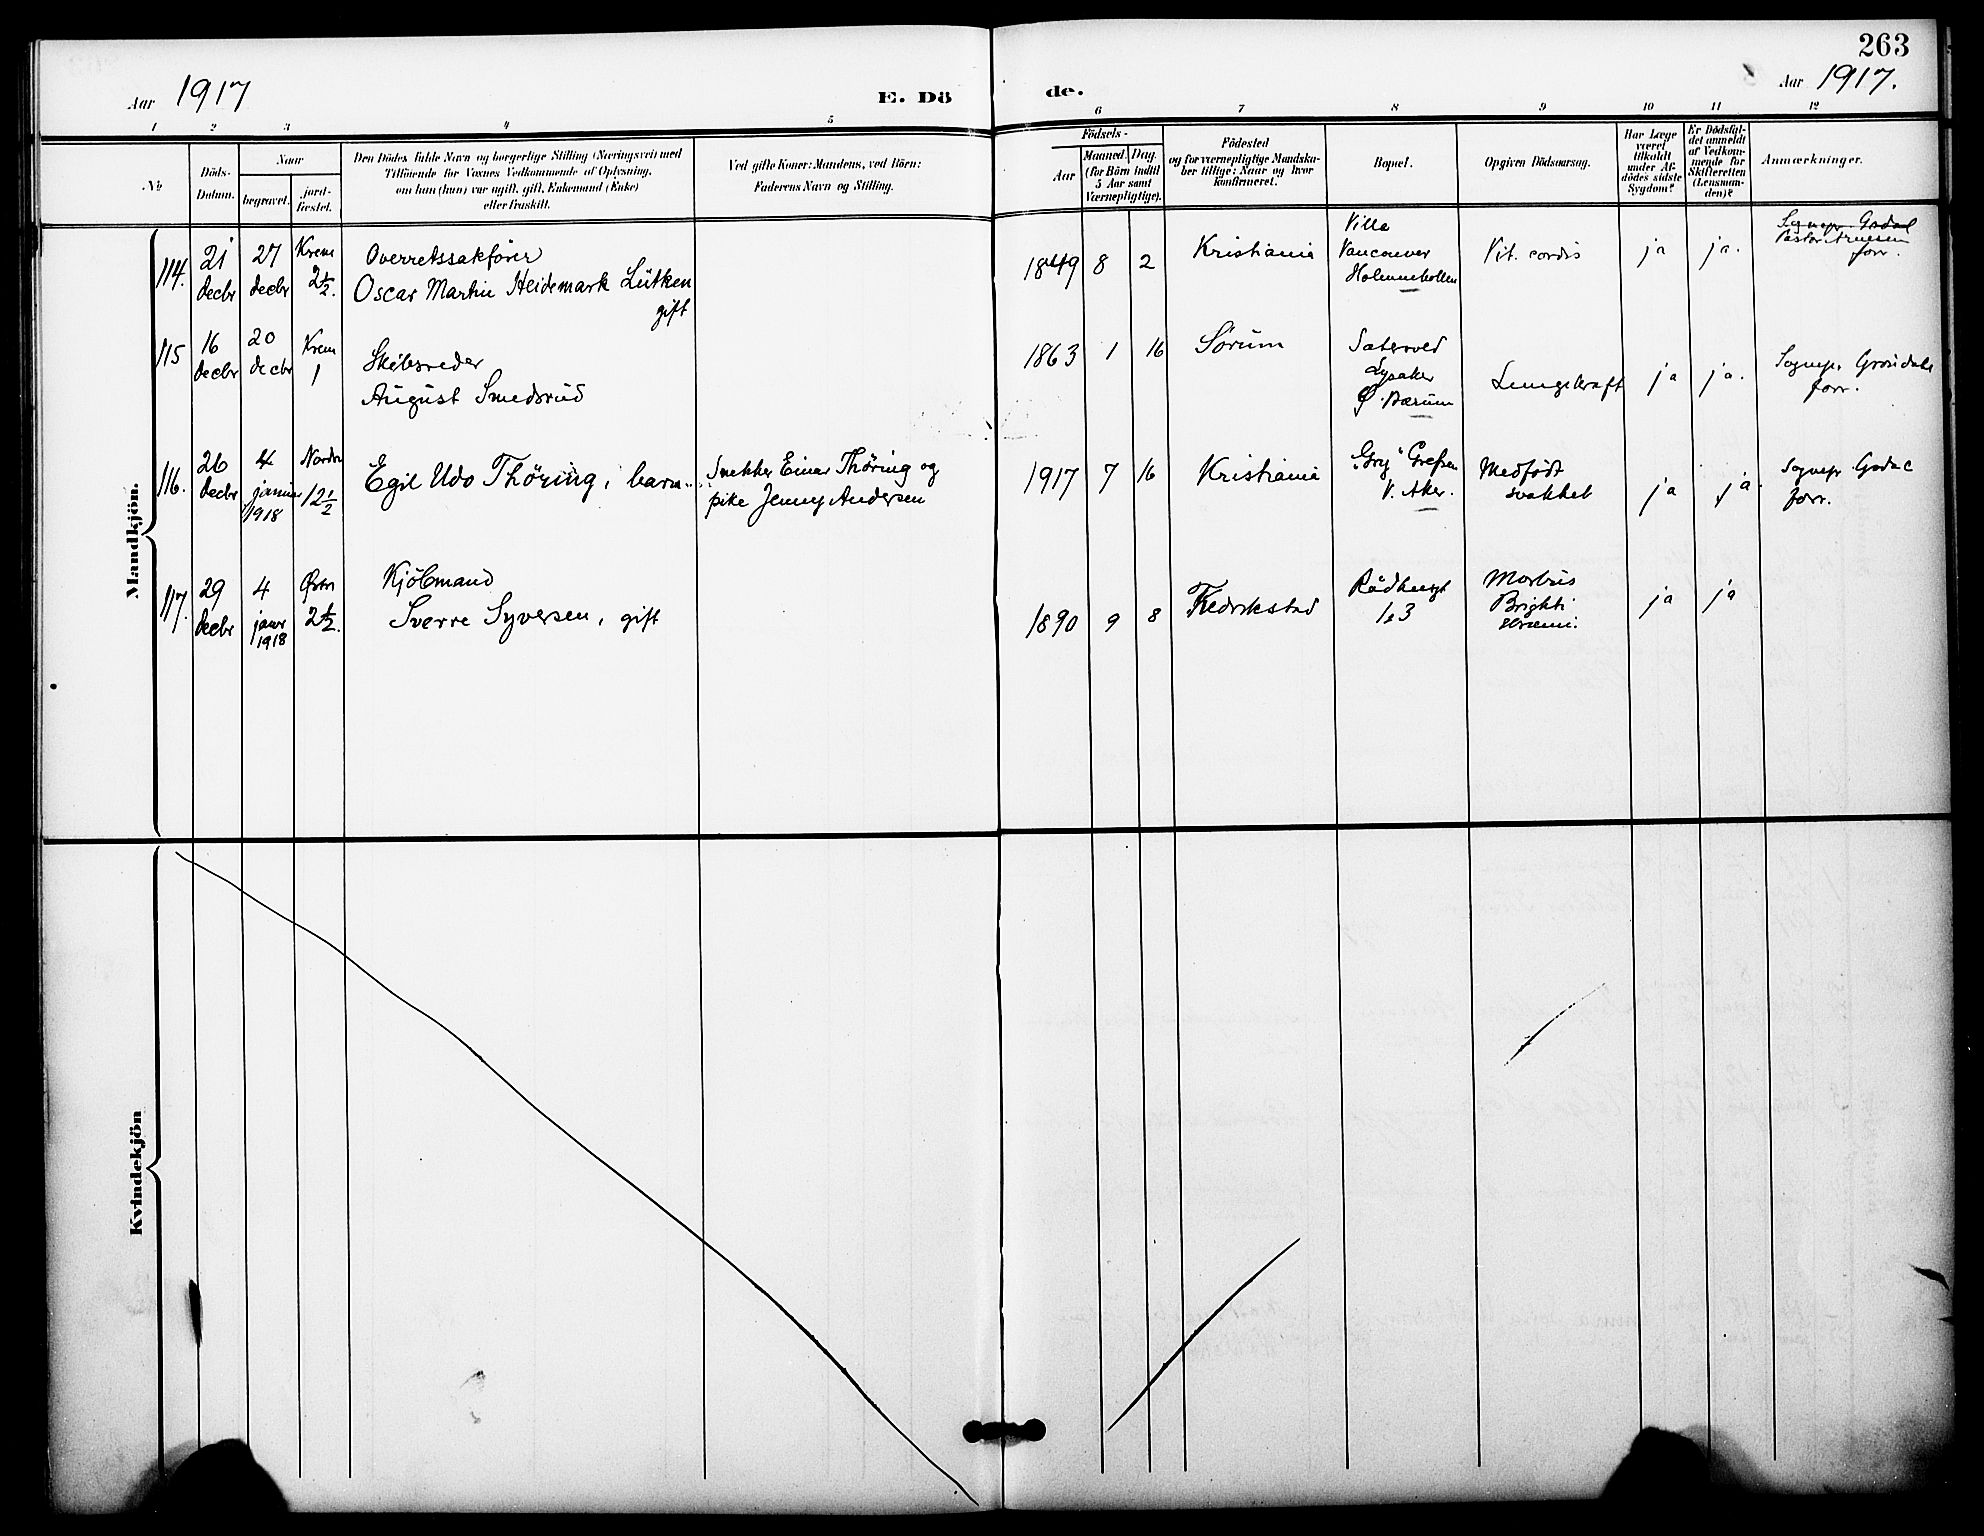 263
Aar 1917
E. Döde.
Aar 1917.
1 2 3 4 5 6 7 8 9 10 11 12
№
Döds-
Datum.
Naar
begravet.
jord-
fæstet.
Den Dödes fulde Navn og borgerlige Stilling (Næringsvei) med
Tilföiende for Voxnes Vedkommende af Oplysning,
om han (hun) var ugift, gift, Enkemand (Enke)
eller fraskilt.
Ved gifte Koner: Mandens, ved Börn:
Faderens Navn og Stilling.
Födsels-
Aar
Maaned. Dag.
(for Börn indtil
5 Aar samt
Værnepligtige).
Födested
og for værnepligtige Mandska-
ber tillige: Naar og hvor
konfirmeret.
Bopæl.
Opgiven Dödsaarsag.
Har Læge
været
tilkaldt
under Af-
dödes sidste
Sygdom?
Er Dödsfal-
det anmeldt
af Vedkom-
mende for
Skifteretten
(Lensman-
den)?
Anmærkninger.
Mandkjön.
114.
21
decbr
27
decbr
Krem
2 1/2.
Overretssakfører
Oscar Martin Heidemark Lütken
gift
1849 8 2
Kristiania
Villa
Vancouver
Holmenkollen
Vit. cordis
ja
ja.
Sognepr. Gsdal
Pastor
forr.
115
16
decbr
20
decbr
Krem
1
Skibsreder
August Smedsrud
1863 1 16
Sørum
Lysaker
Ø. Bærum
Lungekræft
ja
ja.
Sognepr.
forr.
116.
26
decbr
4
januar
1918
Nordre
12 1/2
Egil Udo Thöring, barn.
Snekker Einar Thöring og
pike Jenny Andersen
1917 7 16
Kristiania
"Gry" Grefsen
V. Aker.
Medfödt
svakhet
ja
ja.
Sognepr.
forr.
117.
29
decbr
4
janr
1918
Østre
2 1/2.
Kjöbmand
Sverre Syversen, gift
1890 9 8
Fredrikstad
Rådhusgt
Morbus
Brighti
ja
ja
Kvindekjön